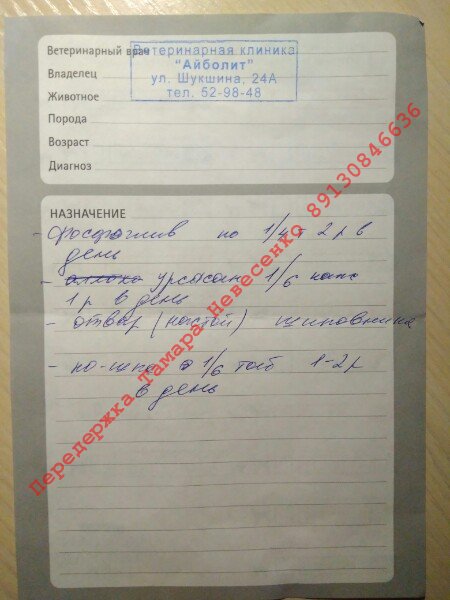 Ветеринарный врач
Владелец
Животное
Порода
Возраст
Диагноз
Ветеринарная клиника
"Айболит"
ул. Шукшина, 24А
тел. 52-98-48
НАЗНАЧЕНИЕ
- фосфоглив по 1/4 - 2 р в
день
- урсосан 1/6
1 р в день
- отвар (настой) шиповника
- но-шпа 1/6 таб 1-2 р
в день
Передержка Тамара Невесенко 89130846636